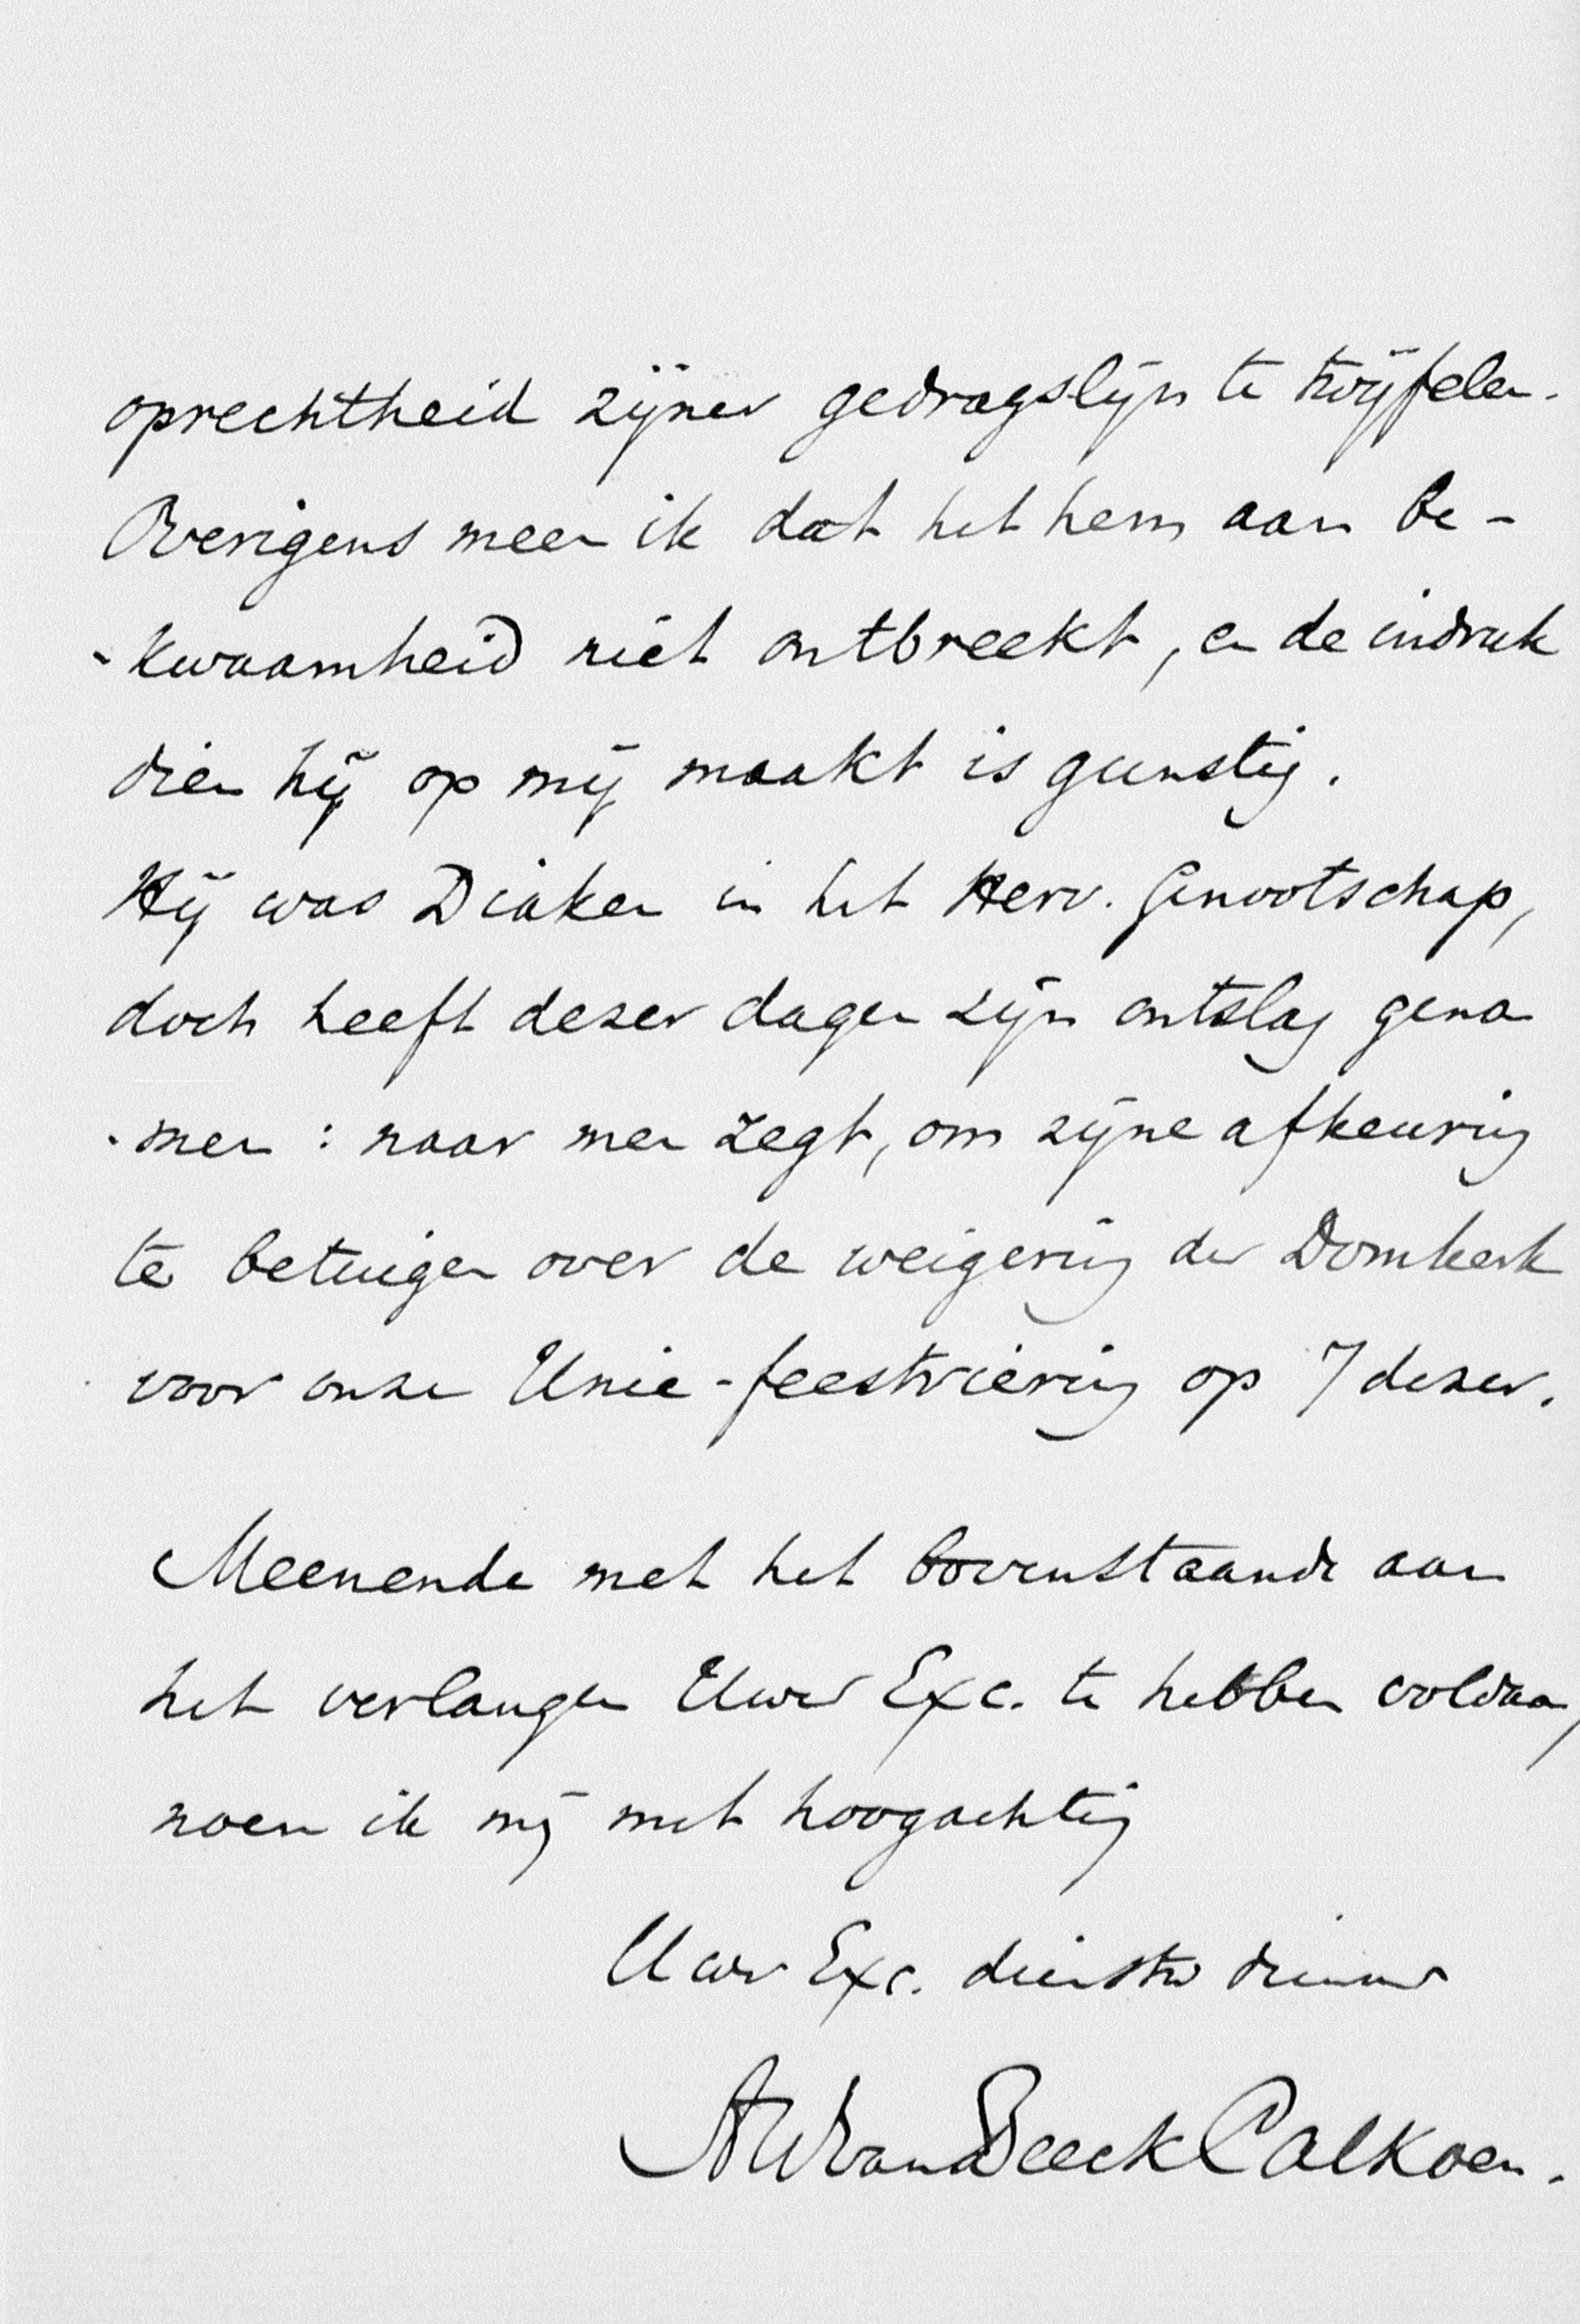 oprechtheid zijner gedragslijn te twijfelen.
Overigens meen ik dat het hem aan be-
-kwaamheid niet ontbreekt, en de indruk
dien hij op mij maakt is gunstig.
Hij was Diaken in het Herv. Genootschap,
doch heeft dezer dagen zijn ontslag geno
-men : naar men zegt, om zijne afkeuring
te betuigen over de weigering der Domkerk
voor onze Unie-feestviering op 7 dezer.
Meenende met het bovenstaande aan
het verlangen Uwer Exc. te hebben voldaan,
noem ik mij met hoogachting
Uwer Exc. dienstw dienaar
AW van Beeck Calkoen.